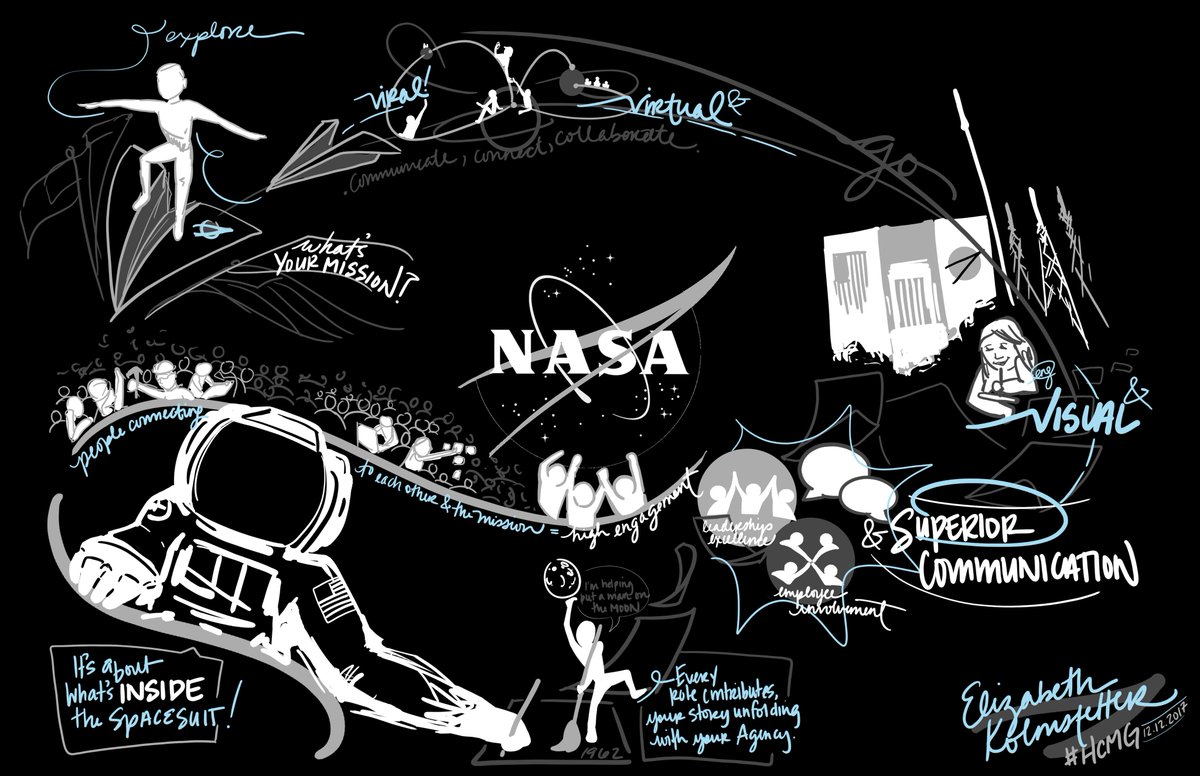 explore
viral!
virtual &
communicate, connect, collaborate.
go
what's
YOUR MISSION?
NASA
VISUAL &
people connecting
to each other & the mission = high engagement
leadership
excellence
employee
involvement
& SUPERIOR
COMMUNICATION
I'm helping
put a man on
the MOON
It's about
what's INSIDE
the SPACESUIT!
Every
role contributes,
your story unfolding
with your Agency.
1962
Elizabeth
Kolmstetter
#HCMG 12.12.2017